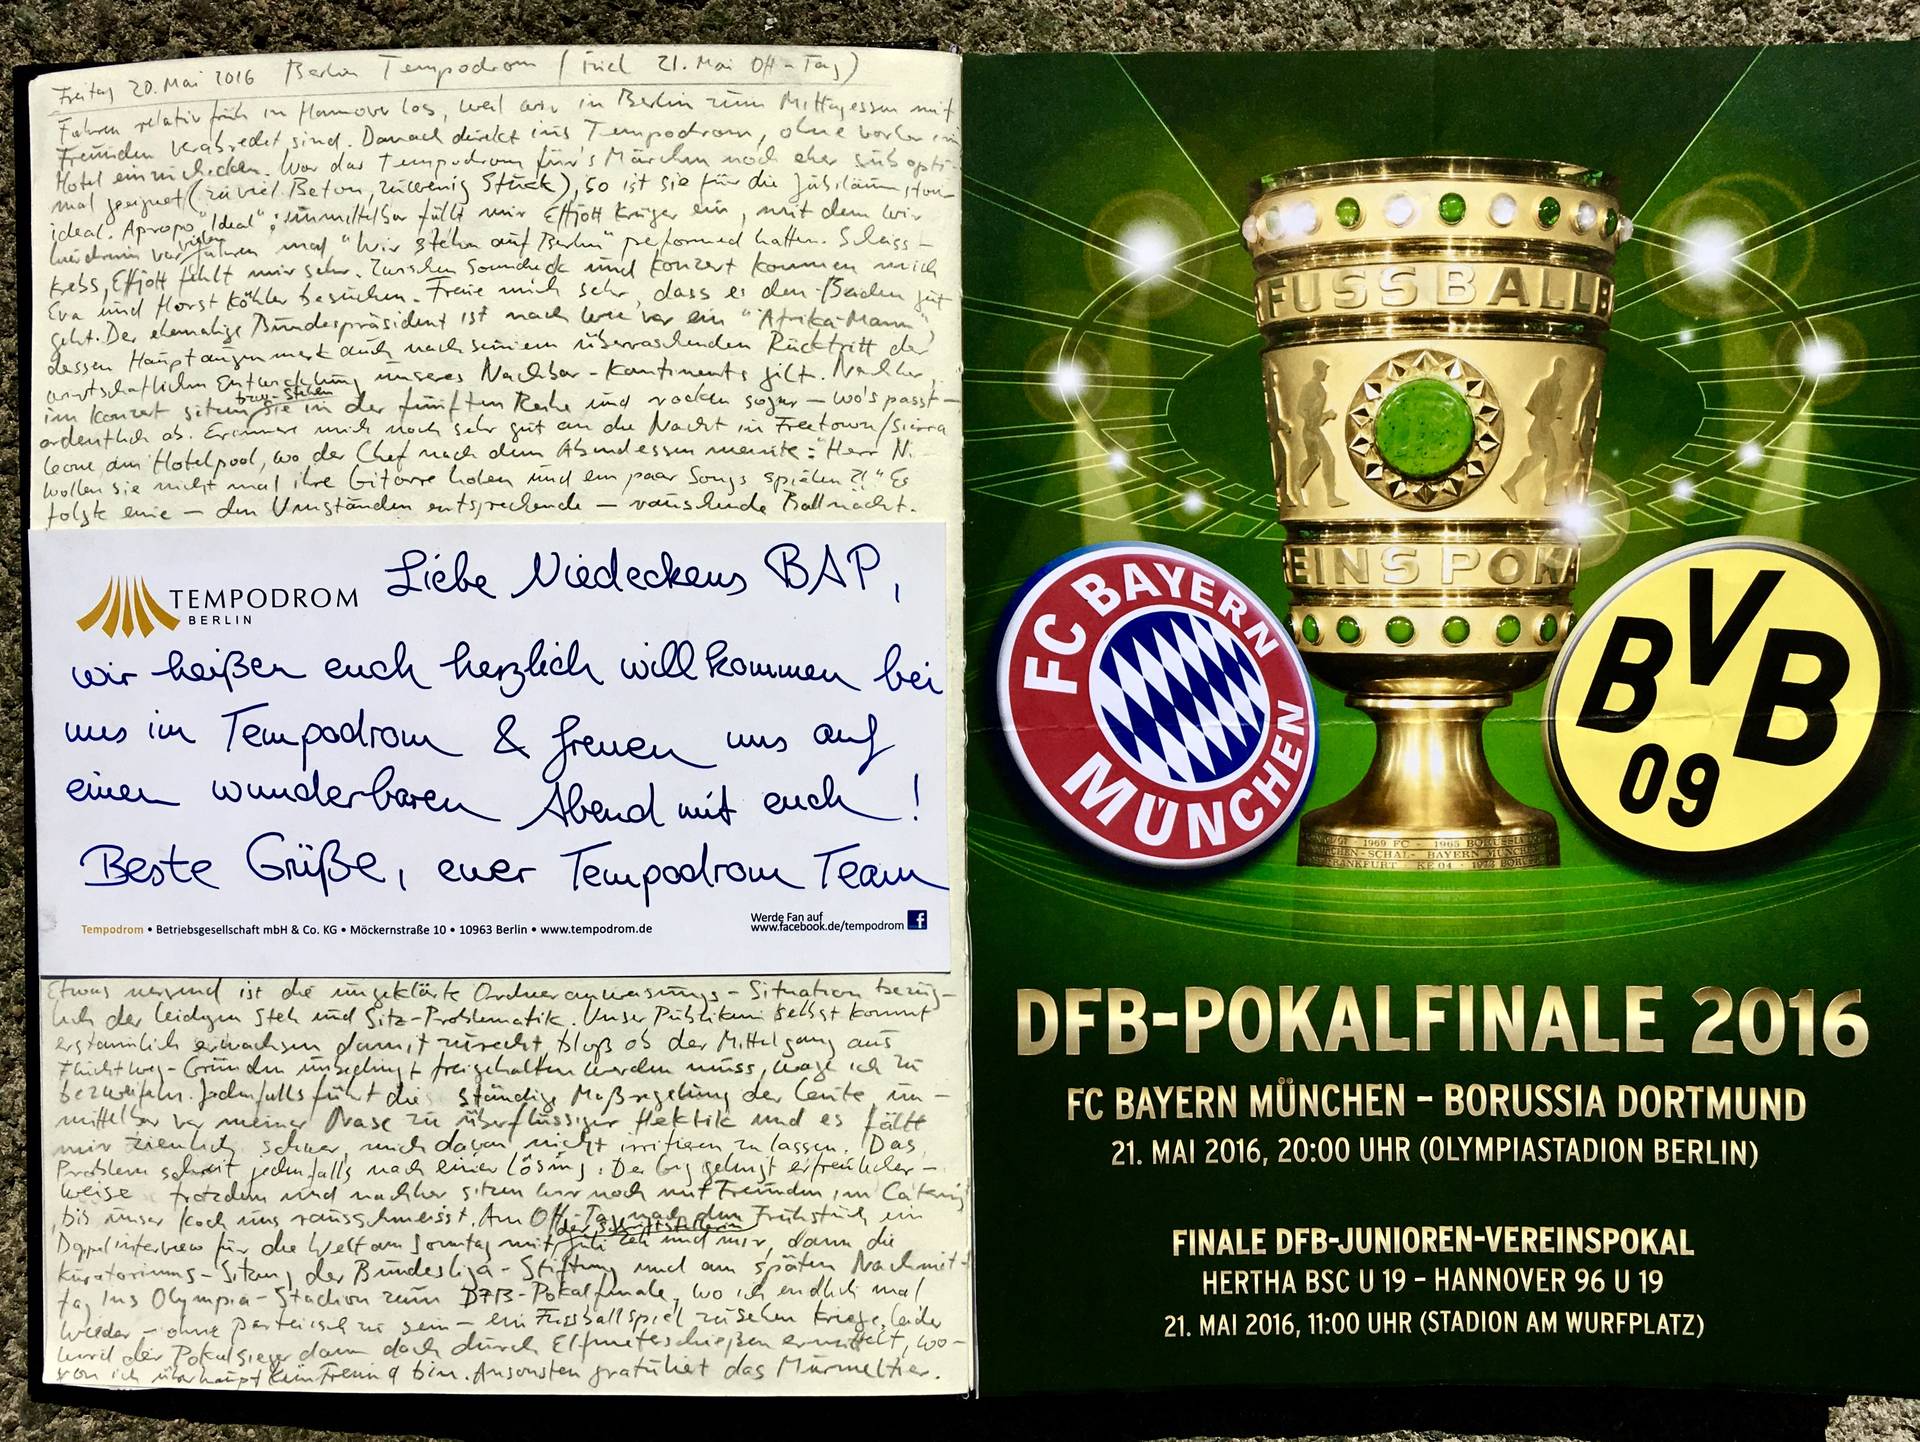 Freitag 20. Mai 2016 Berlin Tempodrom (incl 21. Mai Off-Tag)
Fahren relativ früh in Hannover los, weil wir in Berlin zum Mittagessen mit
Freunden verabredet sind. Danach direkt ins Tempodrom, ohne vorher im
Hotel einzuchecken. War das Tempodrom für's Märchen noch eher subopti-
mal geeignet (zuviel Beton, zuwenig Stuck), so ist sie für die Jubiläumstour
ideal. Apropo "Ideal": unmittelbar fällt mir Effjott Krüger ein, mit dem wir
hierdrin vor vielen Jahren mal "Wir stehn auf Berlin" performed hatten. Scheiss-
krebs, Effjott fehlt mir sehr. Zwischen Soundcheck und Konzert kommen mich
Eva und Horst Köhler besuchen. Freue mich sehr, dass es den Beiden gut
geht. Der ehemalige Bundespräsident ist nach wie vor ein "Afrika-Mann",
dessen Hauptaugenmerk auch nach seinem überraschenden Rücktritt der
wirtschaftlichen Entwicklung unseres Nachbar-Kontinents gilt. Nachher,
im Konzert sitzen bzw. stehen sie in der fünften Reihe und rocken sogar – wo's passt –
ordentlich ab. Erinnere mich noch sehr gut an die Nacht in Freetown/Sierra
Leone am Hotelpool, wo der Chef nach dem Abendessen meinte: "Herr N.
wollen sie nicht mal ihre Gitarre holen und ein paar Songs spielen?!" Es
folgte eine – den Umständen entsprechende – rauschende Ballnacht.
TEMPODROM
BERLIN
Liebe Niedeckens BAP,
wir heißen euch herzlich willkommen bei
uns im Tempodrom & freuen uns auf
einen wunderbaren Abend mit euch!
Beste Grüße, euer Tempodrom Team
Werde Fan auf
www.facebook.de/tempodrom
Tempodrom • Betriebsgesellschaft mbH & Co. KG • Möckernstraße 10 • 10963 Berlin • www.tempodrom.de
Etwas nervend ist die ungeklärte Ordneranweisungs-Situation bezüg-
lich der leidigen Steh und Sitz-Problematik. Unser Publikum selbst kommt
erstaunlich erwachsen damit zurecht, bloß ob der Mittelgang aus
Fluchtweg-Gründen unbedingt freigehalten werden muss, wage ich zu
bezweifeln. Jedenfalls führt die ständige Maßregelung der Leute un-
mittelbar vor meiner Nase zu überflüssiger Hektik und es fällt
mir ziemlich schwer, mich davon nicht irritieren zu lassen. Das
Problem schreit jedenfalls nach einer Lösung. Der Gig gelingt erfreulicher-
weise trotzdem und nachher sitzen wir noch mit Freunden im Catering
bis unser Koch uns rausschmeisst. Am Off-Tag nach dem Frühstück ein
Doppelinterview für die Welt am Sonntag mit der Schriftstellerin Juli Zeh und mir, dann die
Kuratoriums-Sitzung der Bundesliga-Stiftung und am späten Nachmit-
tag ins Olympia-Stadion zum DFB-Pokalfinale, wo ich endlich mal
wieder – ohne parteiisch zu sein – ein Fussballspiel zu sehen kriege, leider
wird der Pokalsieger dann doch durch Elfmeterschießen ermittelt, wo-
von ich überhaupt kein Freund bin. Ansonsten gratuliert das Murmeltier.
FUSSBALLB
EINSPOKA
FC BAYERN
MÜNCHEN
BVB
09
DFB-POKALFINALE 2016
FC BAYERN MÜNCHEN – BORUSSIA DORTMUND
21. MAI 2016, 20:00 UHR (OLYMPIASTADION BERLIN)
FINALE DFB-JUNIOREN-VEREINSPOKAL
HERTHA BSC U 19 – HANNOVER 96 U 19
21. MAI 2016, 11:00 UHR (STADION AM WURFPLATZ)